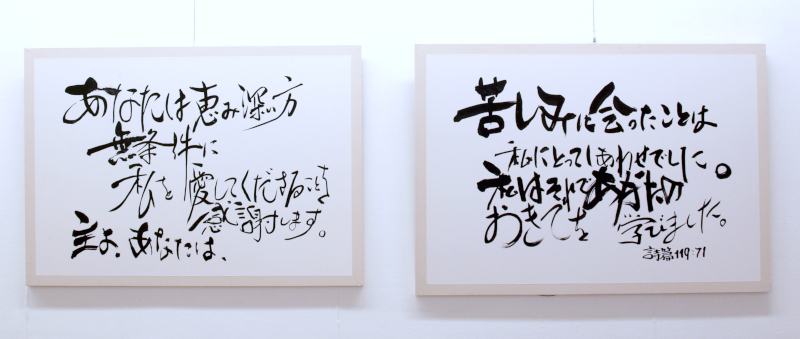 あなたは恵み深い方
無条件に
私を愛してくださることを
感謝します。
主よ、あなたは、
苦しみに会ったことは
私にとってしあわせでした。
私はそれであなたの
おきてを 学びました。
詩篇119:71